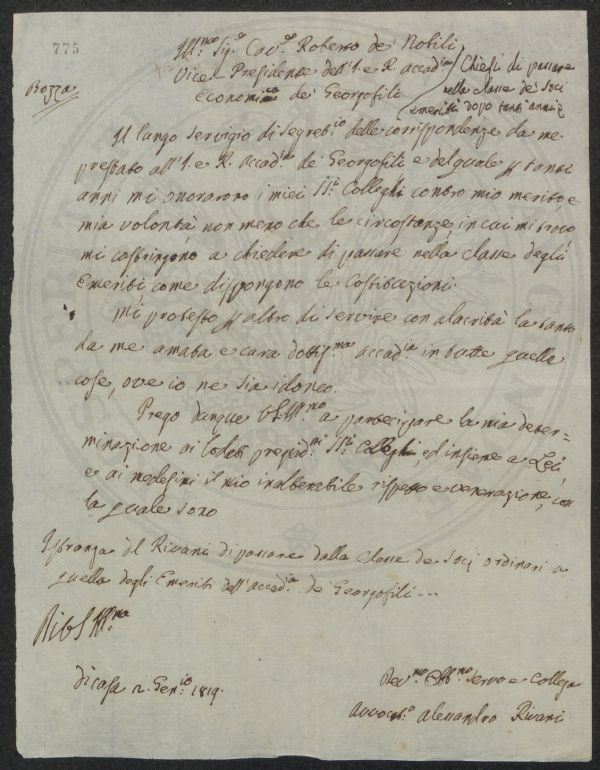 775
Ill.mo Sig.e Cav.e Roberto de' Nobili
Vice-Presidente dell'I. e R. Accad.ia
Economica de' Georgofili
Chiesi di passare
nella classe de' Soci
emeriti dopo tanti anni
Bozza
Il lungo servigio di Segret.io delle corrispondenze da me
prestato all'I. e R. Accad.ia de' Georgofili e del quale p tanti
anni mi onorarono i miei SS.ri Colleghi contro mio merito, e
mia volontà, non meno che le circostanze, in cui mi trovo
mi costringono a chiedere di passare nella classe degli
Emeriti come dispongono le Costituzioni.
Mi protesto p altro di servire con alacrità la tanto
da me amata e cara dottiss.ma Accad.ia in tutte quelle
cose, ove io ne sia idoneo.
Prego dunque VS. Ill.ma a partecipare la mia deter=
minazione ai lodati pregiat.mi SS.ri Colleghi, ed insieme a Lei,
e ai medesimi il mio inalterabile rispetto e venerazione, con
la quale sono
Istanza del Rivani di passare dalla Classe de Socj ordinari a
quella degli Emeriti dell'Accad.ia de' Georgofili---
Di VS. Ill.ma
Di casa 2. Gen.io 1819.
Dev.mo Obb.mo Servo e Collega
Avvocat.o Alessandro Rivani.